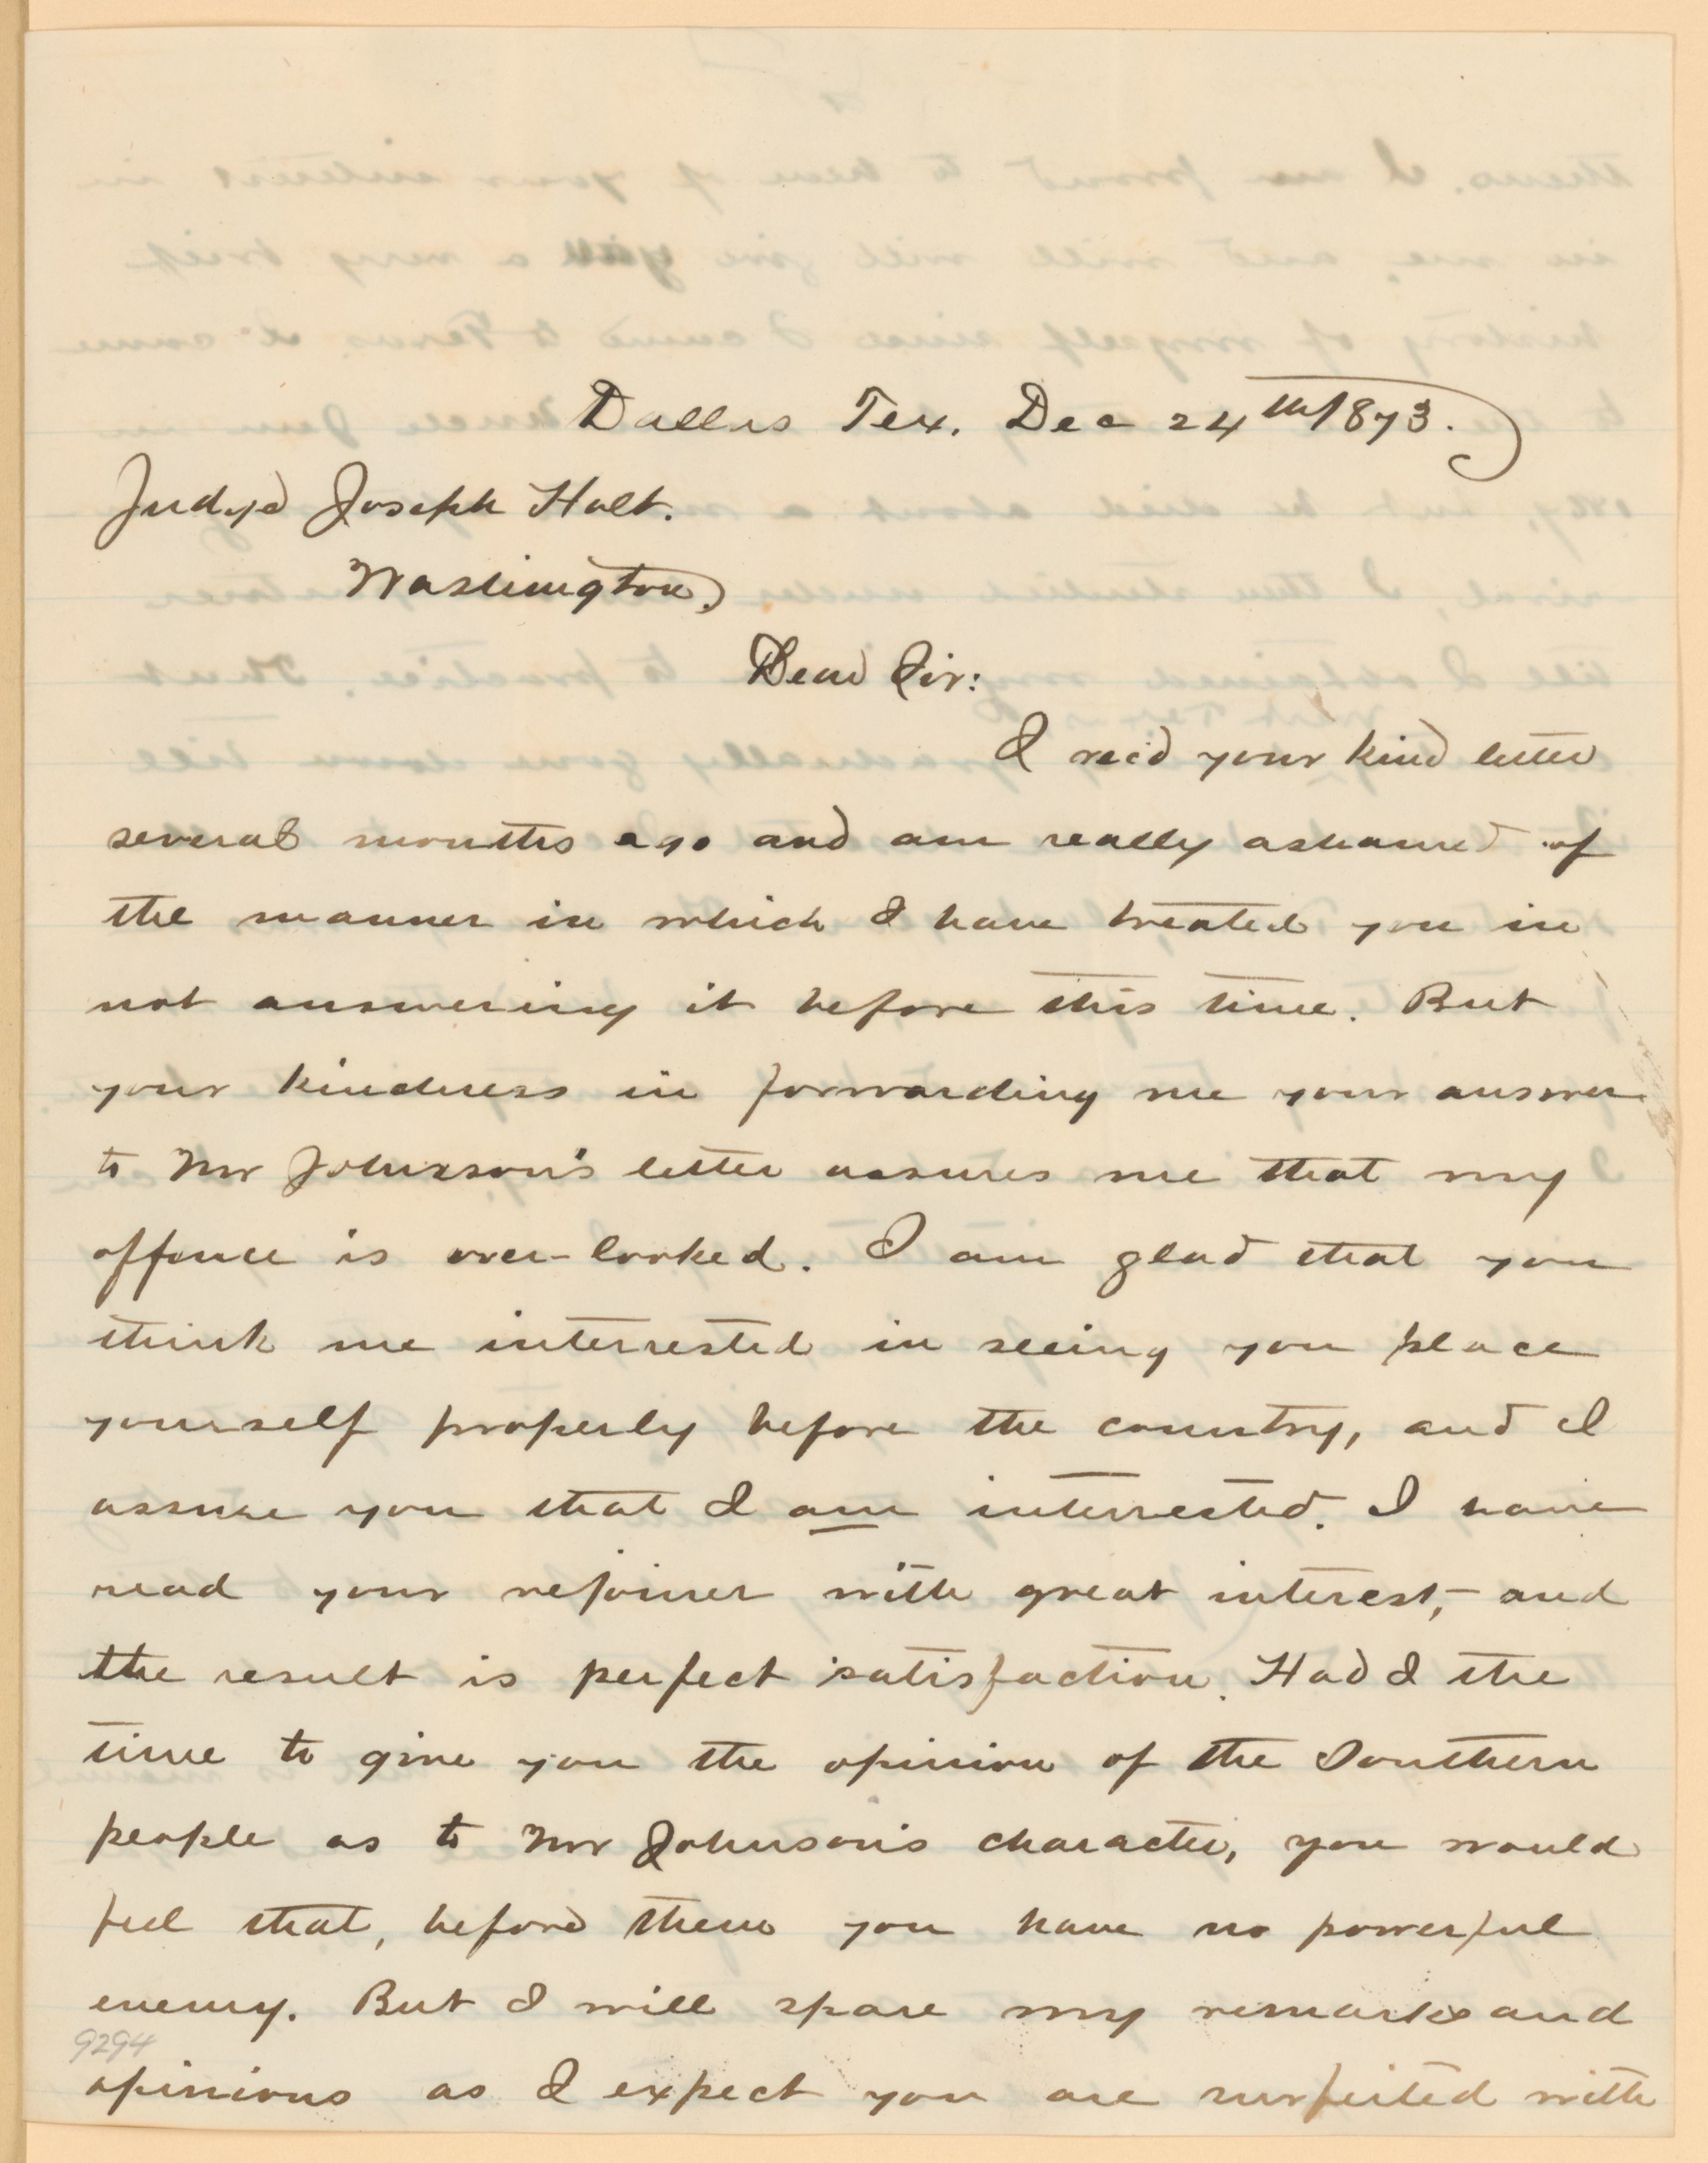 Dallas Tex. Dec 24th 1873.
Judge Joseph Holt.
Washington.
Dear Sir:
I rec'd your kind letter
several months ago and am really ashamed of
the manner in which I have treated you in
not answering it before this time. But
your kindness in forwarding me your answer
to Mr Johnson's letter assures me that my
offence is over-looked. I am glad that you
think me interrested in seeing you place
yourself properly before the country, and I
assure you that I am interrested. I have
read your rejoiner with great interest, and
the result is perfect satisfaction. Had I the
time to give you the opinion of the Southern
people as to Mr Johnson's character, you would
feel that, before them you have no powerful
enemy. But I will spare my remarks and
9294
opinions as I expect you are surfeited with